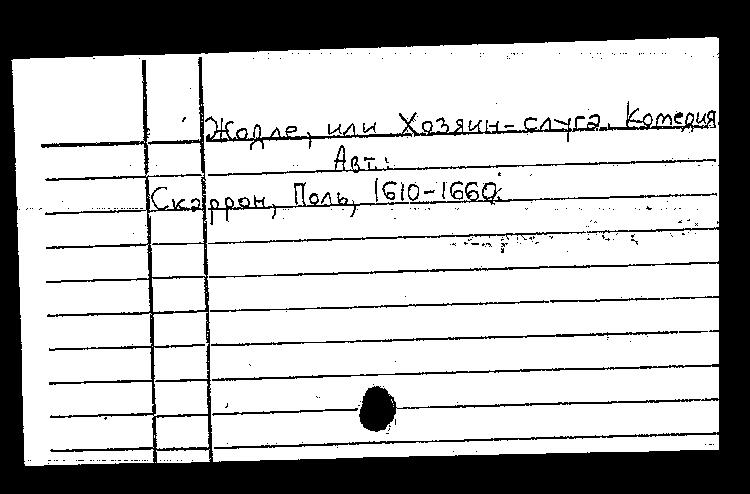 Жодле, или Хозяин-слуга. Комедия.
Авт.:
Скаррон, Поль, 1610-1660.